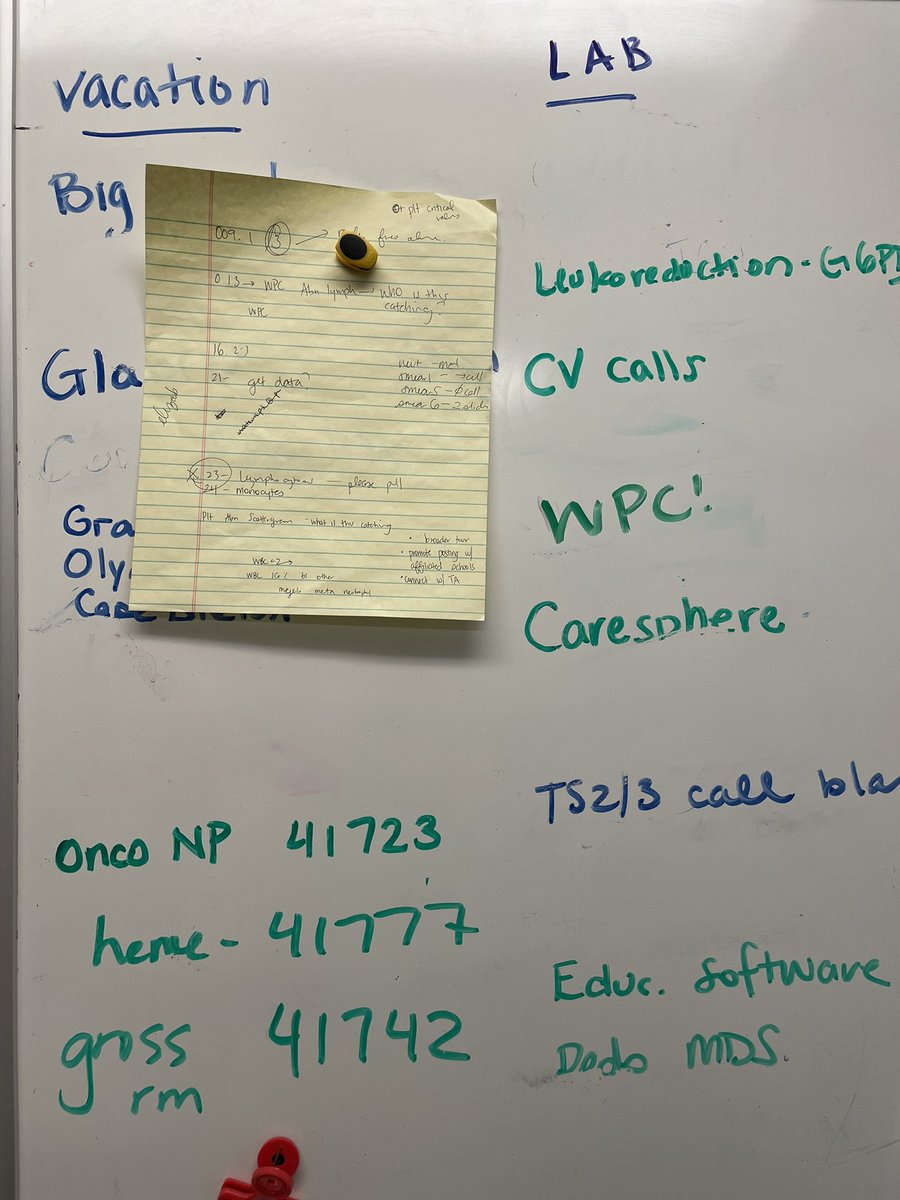 vacation
Big
Gla
Co
Gra
Oly
Case Breton
Onco NP 41723
heme - 41777
gross 41742
rm
or pH critical
values
009. 1 3 → fires alone
013 → WPC Abn lymph → Who is this
catching?
WPC
16, 27
21- get data?
smear 1 - → cell
smear 5 - ∅ cell
smear 6 - 2 slides
23- Lymphocytosis — please pull
24- monocytes
Plt Abn Scattergram - what is this catching
• broader tour
• promote posting w/
affiliated schools
• connect w/ TA
WBC <2 →
WBC IG% bl other
LAB
Leukoreduction - G6PD
CV calls
WPC!
Caresphere
TS2/3 call bla
Educ. Software
MDS